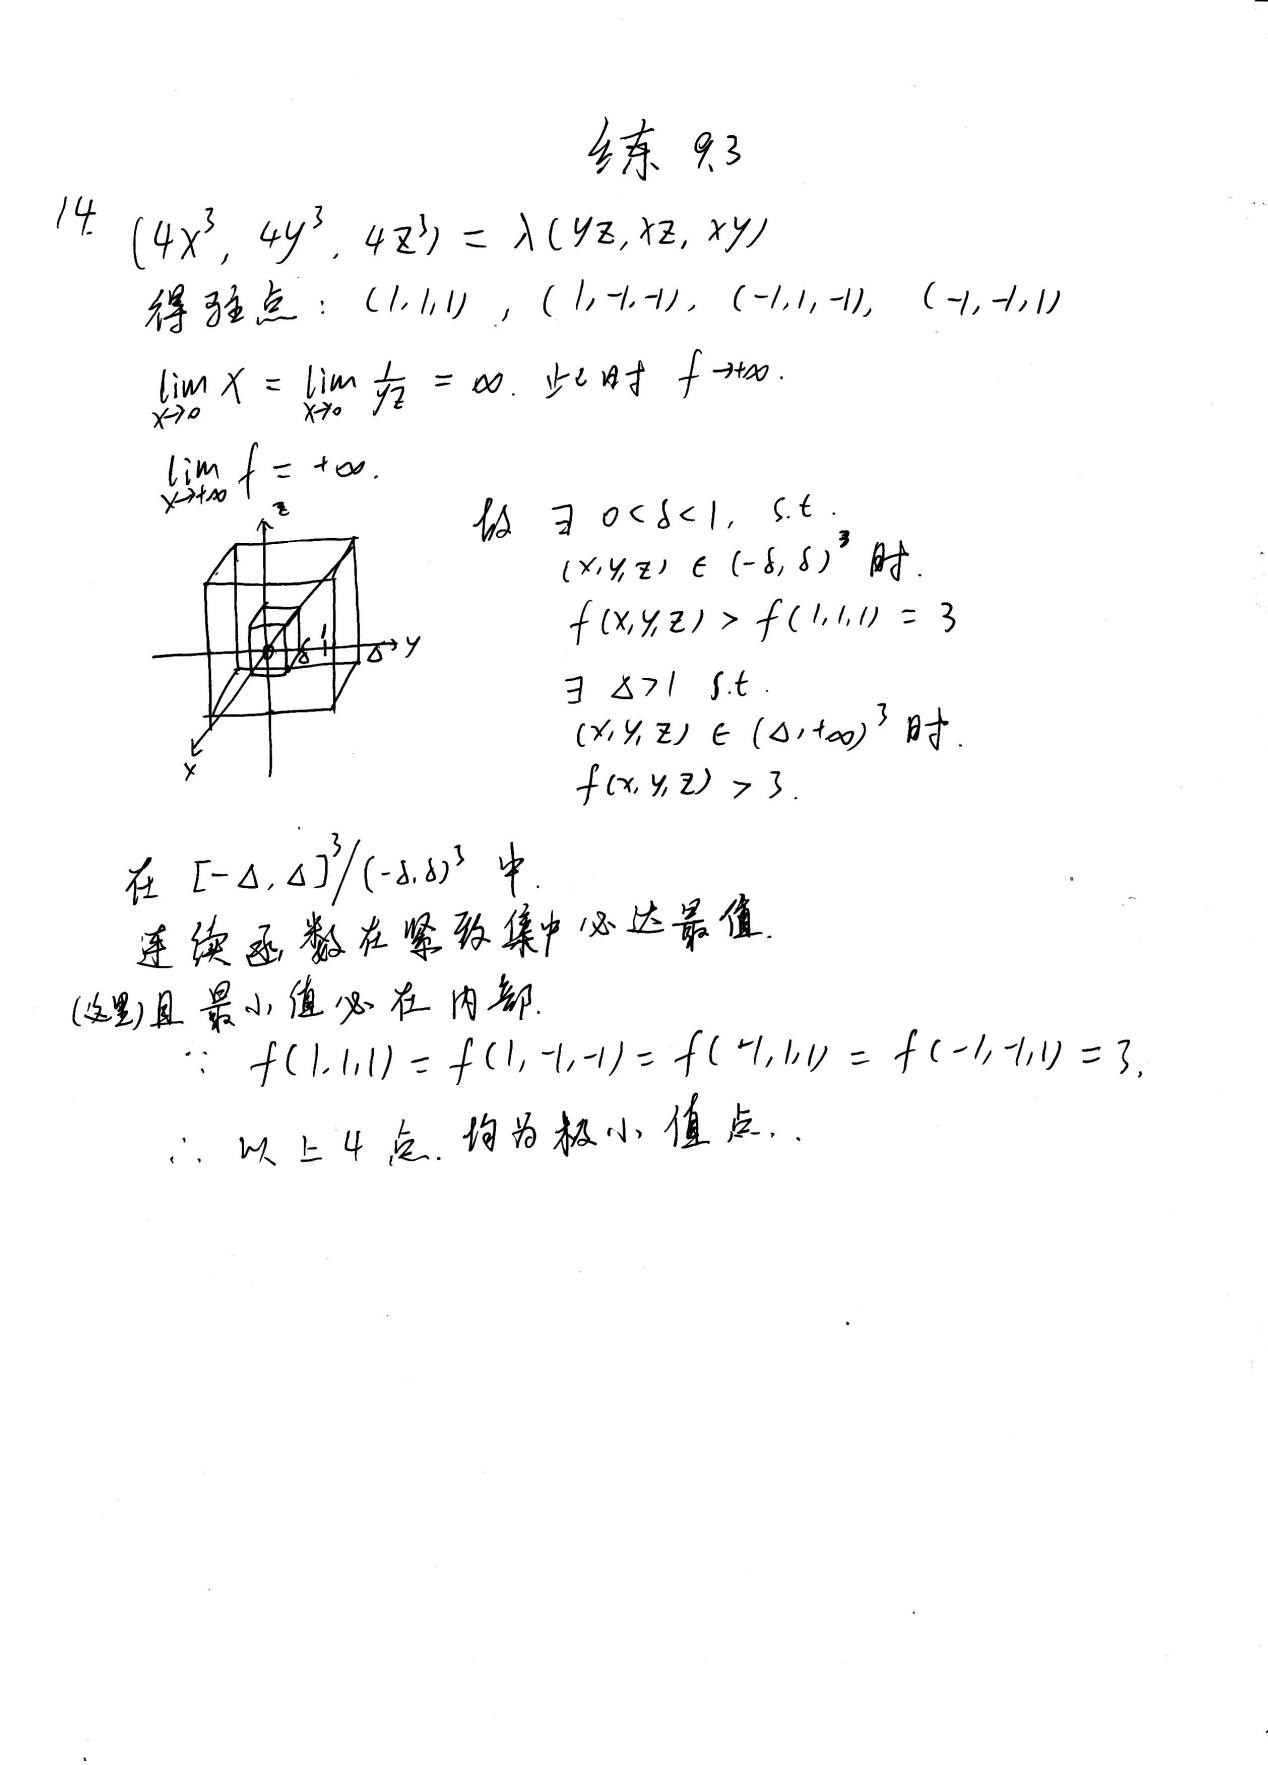 练 9.3
14. (4x³, 4y³, 4z³) = λ(yz, xz, xy)
得驻点: (1,1,1), (1,-1,-1), (-1,1,-1), (-1,-1,1)
lim x→0 x = lim x→0 1/yz = ∞. 此时 f→+∞.
lim x→+∞ f = +∞.
故 ∃ 0<δ<1, s.t.
(x,y,z) ∈ (-δ, δ)³ 时.
f(x,y,z) > f(1,1,1) = 3
∃ Δ>1 s.t.
(x,y,z) ∈ (Δ,+∞)³ 时.
f(x,y,z) > 3.
z
o δ 1 Δ y
x
在 [-Δ, Δ]³/(-δ,δ)³ 中.
连续函数在紧致集中必达最值.
(这里)且最小值必在内部.
∵ f(1,1,1) = f(1,-1,-1) = f(-1,1,1) = f(-1,-1,1) = 3,
∴ 以上4点.均为极小值点..